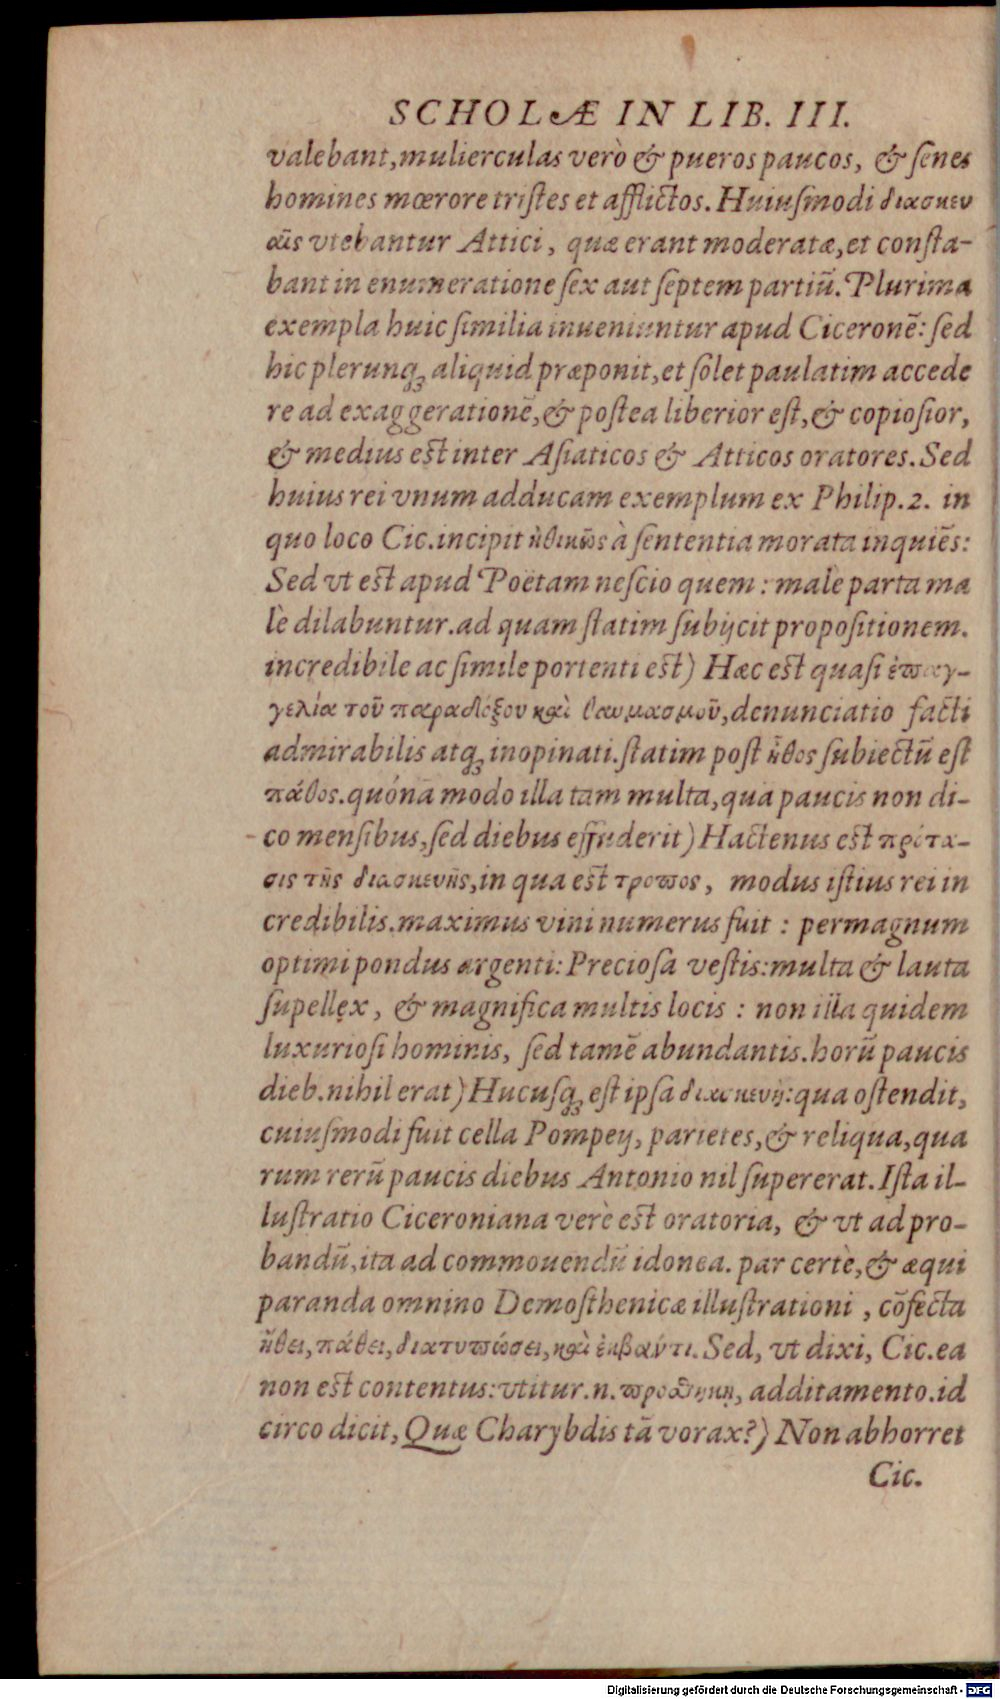 SCHOLÆ IN LIB. III.
valebant, mulierculas verò & pueros paucos, & ſenes
homines mœrore triſtes et afflictos. Huiuſmodi διασκευ
αῖς vtebantur Attici, quæ erant moderatæ, et conſta-
bant in enumeratione ſex aut ſeptem partiū. Plurima
exempla huic ſimilia inueniuntur apud Ciceronē: ſed
hic plerunqꝫ aliquid præponit, et ſolet paulatim accede
re ad exaggerationē, & poſtea liberior eſt, & copioſior,
& medius eſt inter Aſiaticos & Atticos oratores. Sed
huius rei vnum adducam exemplum ex Philip. 2. in
quo loco Cic. incipit ἠθικῶς à ſententia morata inquiēs:
Sed vt eſt apud Poëtam neſcio quem: malè parta ma
lè dilabuntur. ad quam ſtatim ſubijcit propoſitionem.
incredibile ac ſimile portenti eſt) Hæc eſt quaſi ἐπαγ-
γελία τοῦ παραδόξου καὶ θαυμασμοῦ, denunciatio facti
admirabilis atqꝫ inopinati. ſtatim poſt ἦθος ſubiectū eſt
πάθος. quónā modo illa tam multa, quā paucis non di-
co menſibus, ſed diebus effuderit) Hactenus eſt πρότα-
σις τῆς διασκευῆς, in qua eſt τροπος, modus iſtius rei in
credibilis. maximus vini numerus fuit: permagnum
optimi pondus argenti: Precioſa veſtis: multa & lauta
ſupellex, & magnifica multis locis: non illa quidem
luxurioſi hominis, ſed tamē abundantis. horū paucis
dieb. nihil erat) Hucuſqꝫ eſt ipſa διασκευή: qua oſtendit,
cuiuſmodi fuit cella Pompeij, parietes, & reliqua, qua
rum rerū paucis diebus Antonio nil ſupererat. Iſta il-
luſtratio Ciceroniana verè eſt oratoria, & vt ad pro-
bandū, ita ad commouendū idonea. par certè, & æqui
paranda omnino Demoſthenicæ illuſtrationi, cōfecta
ἤθει, πάθει, διατυπώσει, καὶ ἐκβαντι. Sed, vt dixi, Cic. ea
non eſt contentus: vtitur .n. προσθήκῃ, additamento. id
circo dicit, Quæ Charybdis tā vorax?) Non abhorret
Cic.
Digitalisierung gefördert durch die Deutsche Forschungsgemeinschaft - DFG